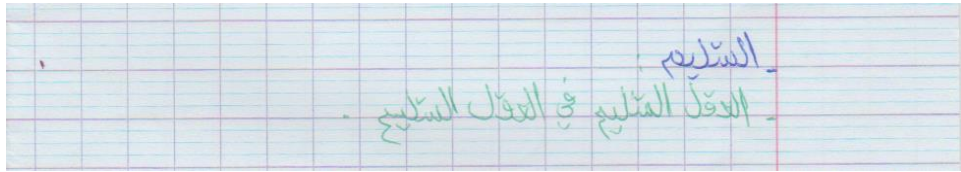 - السّليم :
- العقلّ السّليم في العقل السّليم .